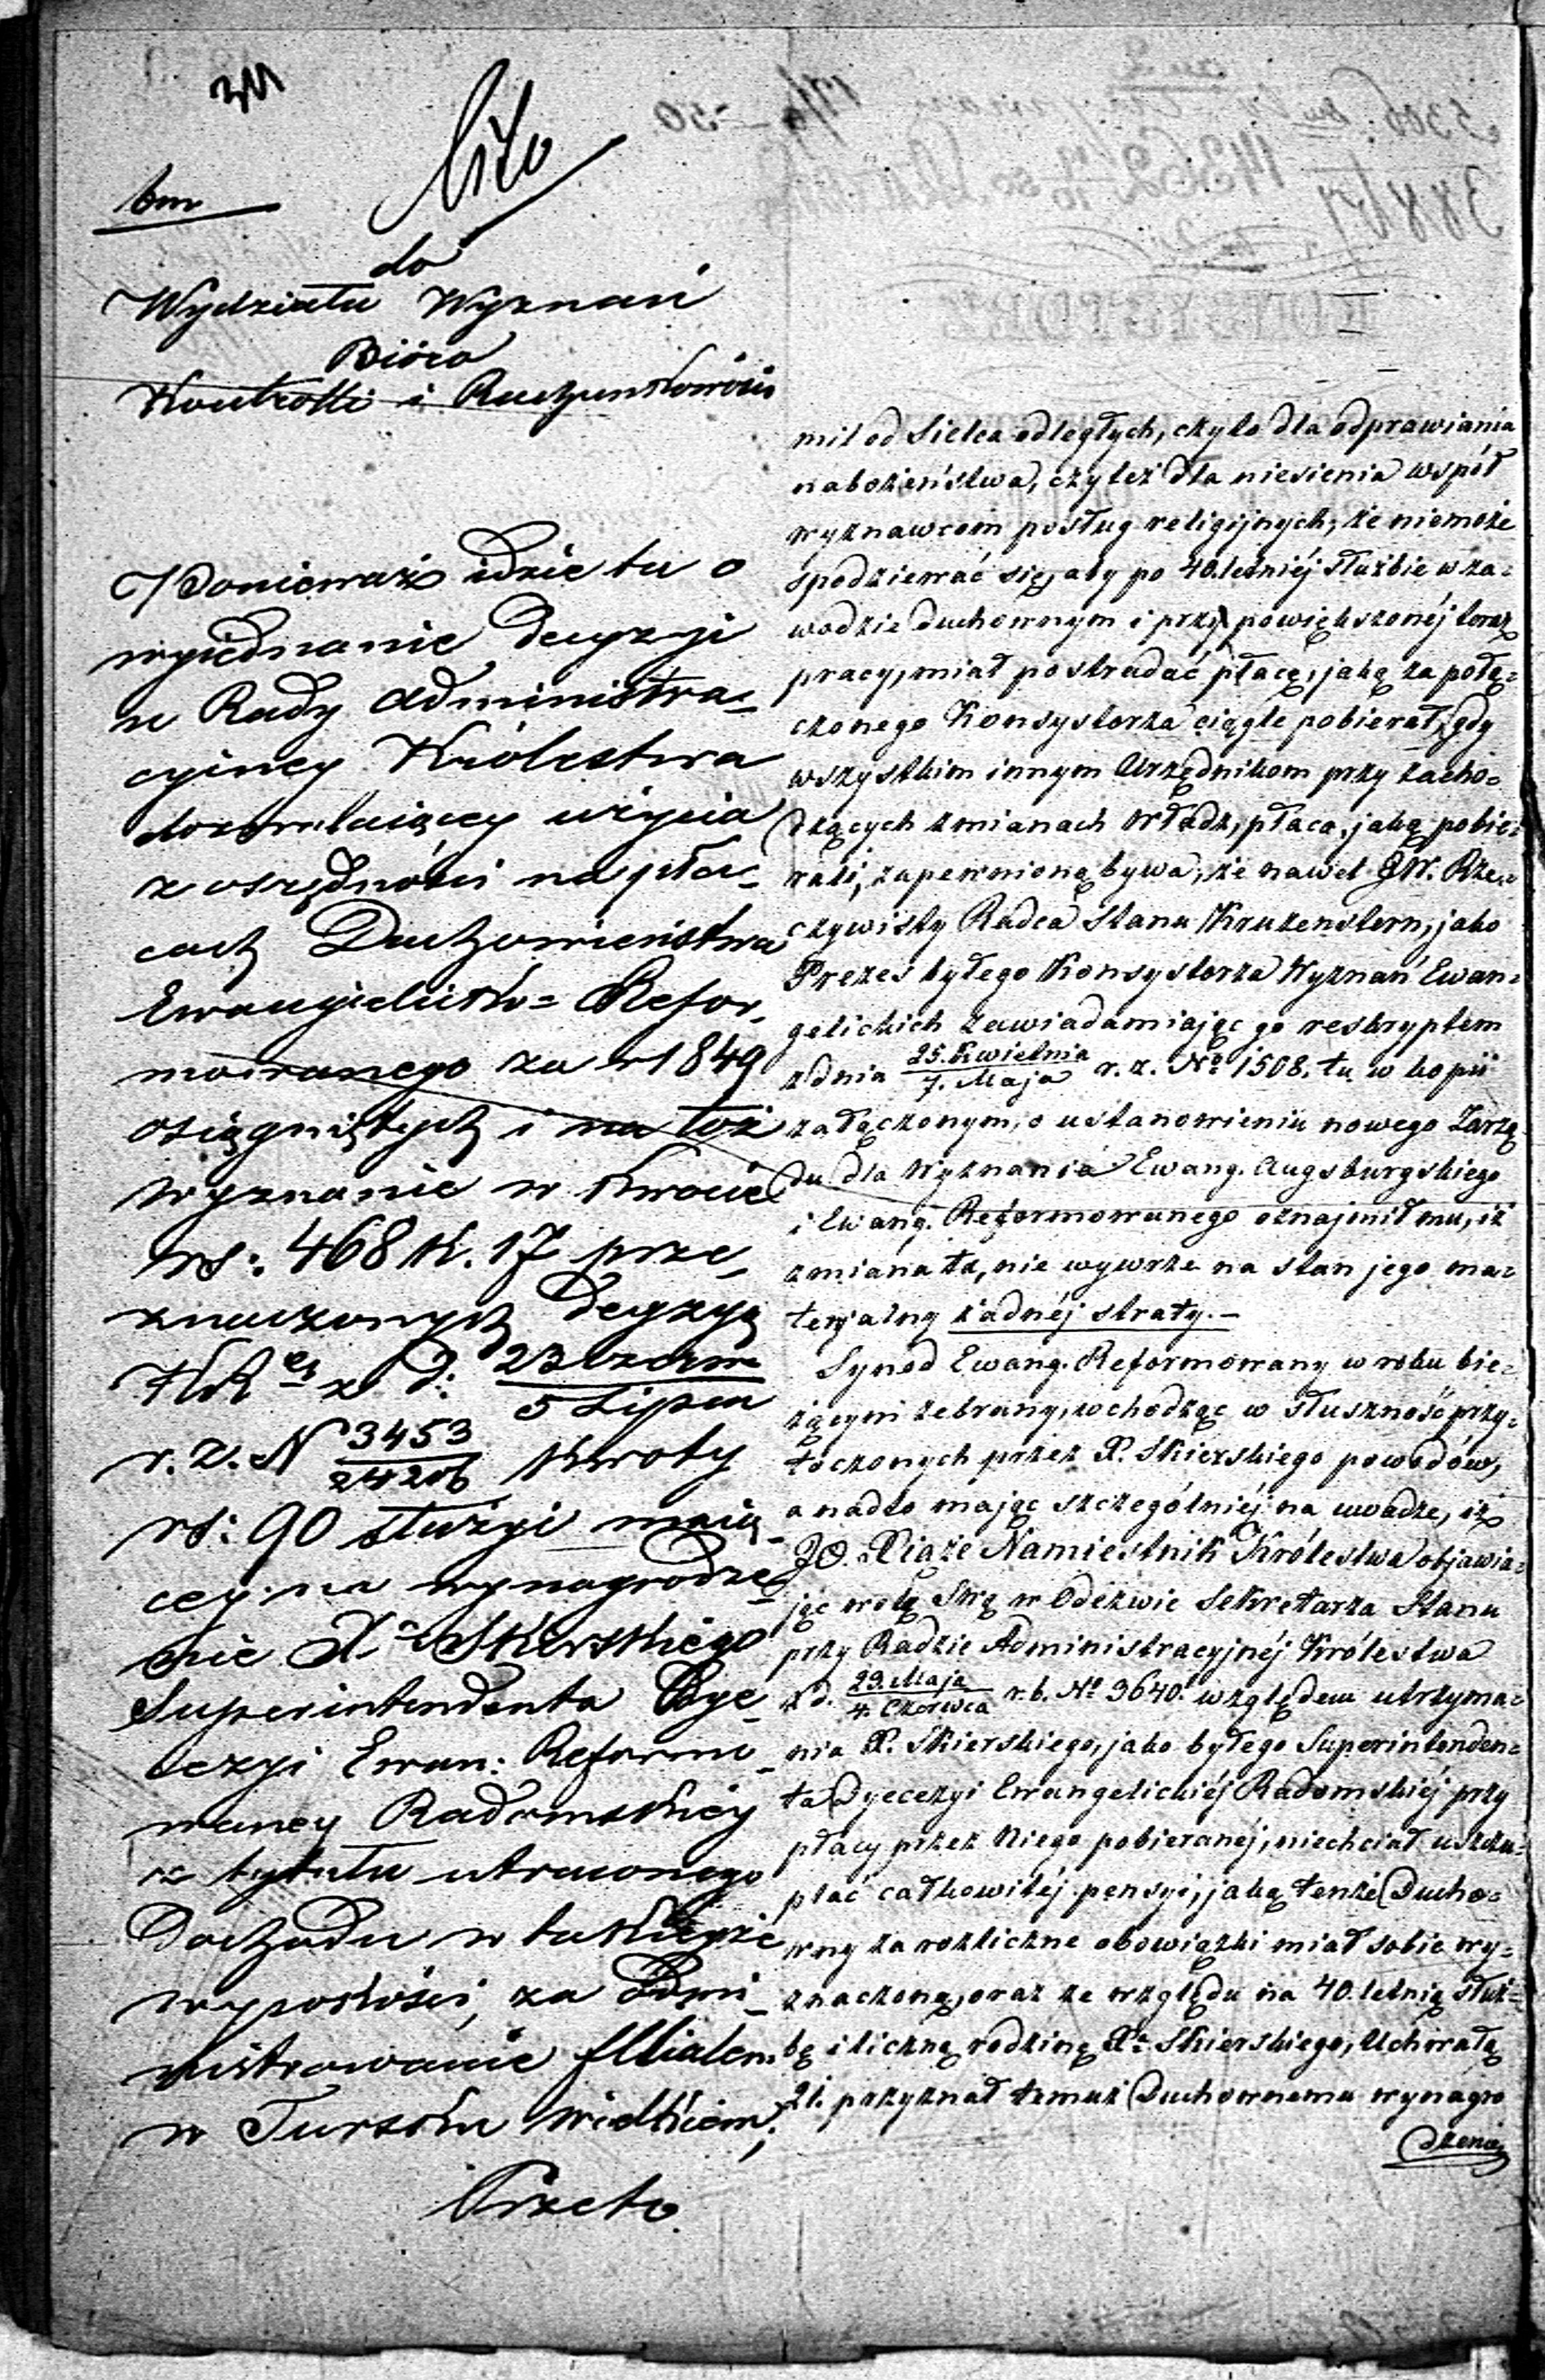 Cito
do
Wydziału Wyznań
Bióra
Kontrolli i Rachunkowości
Ponieważ idzie tu o
wyjednanie decyzyi
w Rady Administra-
cyiney Królestwa
dozwalaiącey użycia
z oszczędności na pła-
cach Duchowieństwa
Ewangielicko-Refor-
mowanego za r 1849
osiągniętych i na toż
wyznanie w kwocie
rs: 468 k. 17 prze-
znaczonych decyzyą
z d: 23 Czerwca / 5 Lipca
r. z. N 3453 / 24206 kwoty
rs: 90 służyć maią-
cey na wynagrodze-
nie Xa Skierskiego
Superintendenta Dye-
cezyi Ewan: Reformo-
waney Radomskiey
z tytułu utraconego
Dochodu w takieyże
wysokości, za Admi-
nistrowanie filiałem
w Tursku Wielkiem;
Przeto
mil od Sielca odległych, czyto dla odprawiania
nabożeństwa, czyteż dla niesienia współ
wyznawcom posług religijnych; że niemoże
spodziewać się, aby po 40. letniéj służbie w za-
wodzie duchownym i przy powiększonéj teraz
pracy, miał postradać płacę, jaką za połą-
czonego Konsystorza ciągle pobierał, gdy
wszystkim innym Urzędnikom przy zacho-
dzących zmianach Władz, płaca, jaką pobie-
rali, zapewnioną bywa; że nawet JW. Rze-
czywisty Radca Stanu Kruzenstern, jako
Prezes byłego Konsystorza Wyznań Ewan-
gelickich zawiadamiając go reskryptem
z dnia 25. Kwietnia / 7. Maja r. z. No 1508. tu w kopii
załączonym, o ustanowieniu nowego Zarzą-
du dla Wyznania Ewang. Augsburgskiego
i Ewang. Reformowanego oznajmił mu, iż
zmiana ta, nie wywrze na stan jego ma-
teryalny żadnéj straty.—
Synod Ewang. Reformowany w roku bie-
żącym zebrany, wchodząc w słuszność przy-
toczonych przez X. Skierskiego powodów,
a nadto mając szczególniéj na uwadze, iż
JO. Xiąże Namiestnik Królestwa objawia-
jąc wolę Swą w Odezwie Sekretarza Stanu
przy Radzie Administracyjnéj Królestwa
z d. 23. Maja / 4. Czerwca r. b. No 9640. względem utrzyma-
nia X. Skierskiego, jako byłego Superintenden-
ta Dyecezyi Ewangelickiéj Radomskiéj przy
płacy przez Niego pobieranéj, niechciał uszczu-
plać całkowitéj pensyi, jaką tenże Ducho-
wny za rozliczne obowiązki miał sobie wy-
znaczoną, oraz ze względu na 40. letnią służ-
bę i liczną rodzinę Xa Skierskiego, Uchwałą
21. przyznał temuż Duchownemu wynagro
dzenie